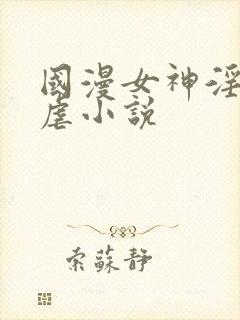 國漫女神淫
虐小說
索蘇靜